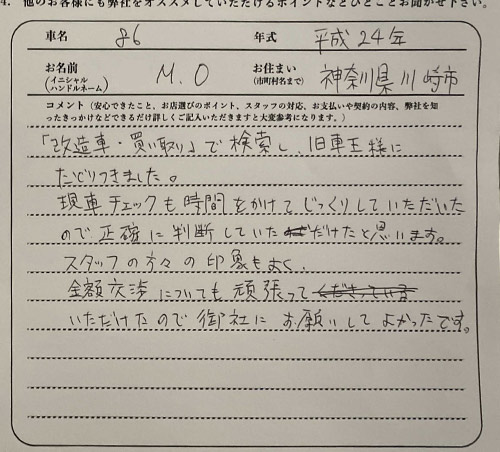 4. 他のお客様にも弊社をオススメしていただけるポイントなどひとことお聞かせ下さい。
車名 86 年式 平成24年
お名前 (イニシャル ハンドルネーム) M.O お住まい (市町村名まで) 神奈川県川崎市
コメント (安心できたこと、お店選びのポイント、スタッフの対応、お支払いや契約の内容、弊社を知
ったきっかけなどできるだけ詳しくご記入いただきますと大変参考になります。)
「改造車・買い取り」で検索し、旧車王様に
たどりつきました。
現車チェックも時間をかけてじっくりしていただいた
ので正確に判断していただけたと思います。
スタッフの方々の印象もよく、
金額交渉についても頑張って
いただけたので御社にお願いしてよかったです。